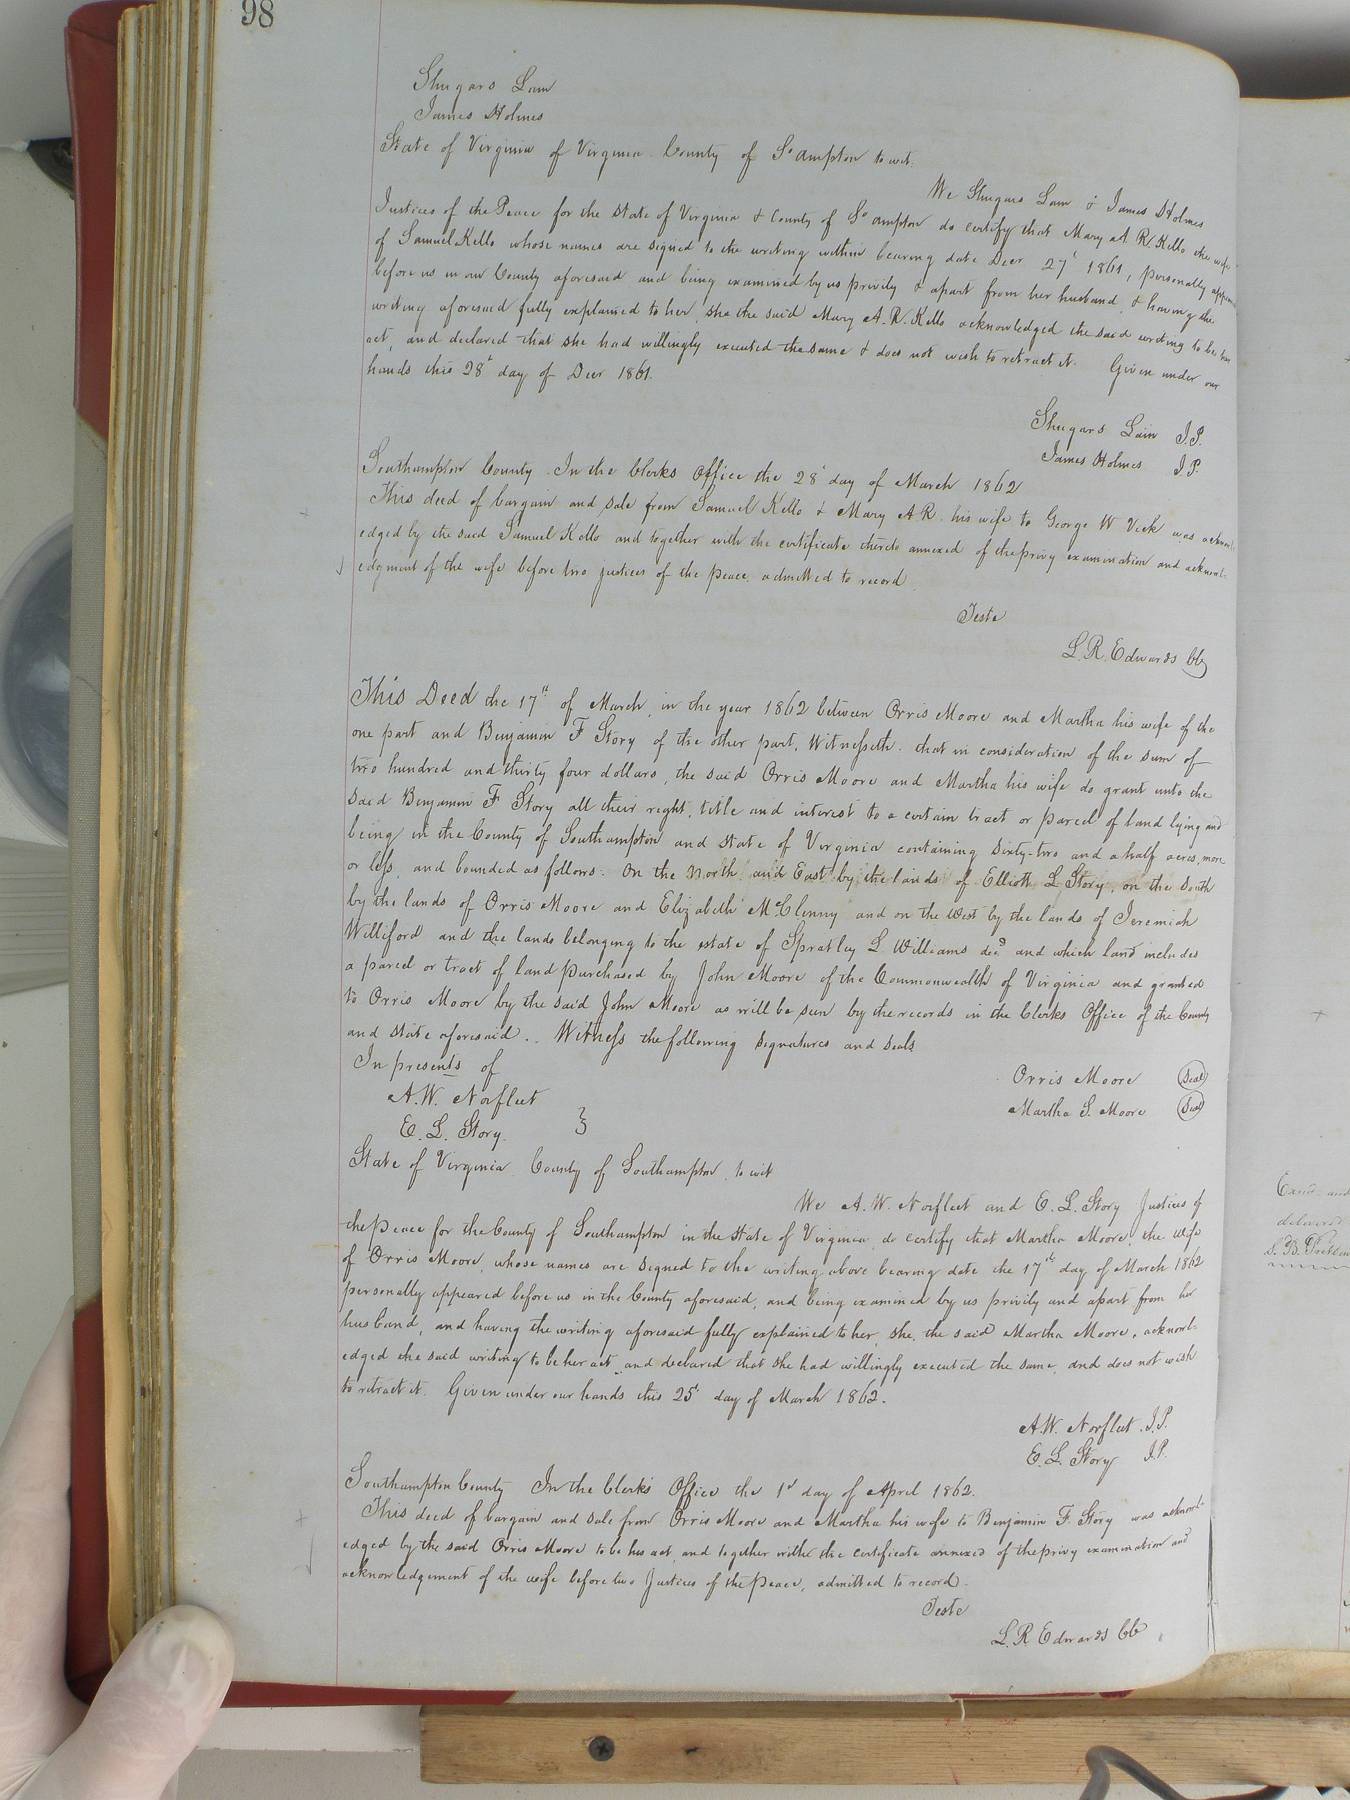 98
Shugars Lain
James Holmes
State of Virginia of Virginia County of So ampton to wit.
We Shugars Lain & James Holmes
Justices of the Peace for the State of Virginia & County of So ampton do certify that Mary A R. Kello the wife
of Samuel Kello whose names are signed to the writing within bearing date Decr 27' 1861, personally
before us in our County aforesaid and being examined by us privily & apart from her husband & having the
writing aforesaid fully explained to her, she the said Mary A. R. Kello acknowledged the said writing to be her
act, and declared that she had willingly executed the same & does not wish to retract it. Given under our
hands this 28' day of Decr 1861.
Shugars Lain J.P.
James Holmes J.P.
Southampton County. In the Clerks Office the 28' day of March 1862
This deed of bargain and sale from Samuel Kello & Mary A R. his wife to George W Vick was acknowl-
edged by the said Samuel Kello and together with the certificate thereto annexed of the privy examination and acknowl-
edgment of the wife before two justices of the peace, admitted to record.
Teste
L. R. Edwards CC
This Deed the 17th of March, in the year 1862 between Orris Moore and Martha his wife of the
one part and Benjamin F Story of the other part, Witnesseth. that in consideration of the sum of
two hundred and thirty four dollars, the said Orris Moore and Martha his wife do grant unto the
said Benjamin F Story all their right, title and interest to a certain tract or parcel of land lying and
being in the County of Southampton and State of Virginia containing sixty-two and a half acres, more
or less, and bounded as follows. On the North and East by the lands of Elliott L Story, on the South
by the lands of Orris Moore and Elizabeth McClenny and on the West by the lands of Jeremiah
Williford and the lands belonging to the estate of Spratley L Williams decd and which land includes
a parcel or tract of land purchased by John Moore of the Commonwealth of Virginia and granted
to Orris Moore by the said John Moore as will be seen by the records in the Clerks Office of the County
and State aforesaid. Witness the following signatures and seals
In presents of
Orris Moore (Seal)
A. W. Norfleet
Martha S. Moore (Seal)
E. L. Story }
State of Virginia County of Southampton, to wit
We A. W. Norfleet and E. L. Story Justices of
the Peace for the County of Southampton in the State of Virginia, do certify that Martha Moore, the wife
of Orris Moore, whose names are signed to the writing above bearing date the 17th day of March 1862
personally appeared before us in the County aforesaid, and being examined by us privily and apart from her
husband, and having the writing aforesaid fully explained to her, she, the said Martha Moore, acknowl-
edged the said writing to be her act, and declared that she had willingly executed the same, and does not wish
to retract it. Given under our hands this 25' day of March 1862.
A. W. Norfleet. J.P.
E. L. Story J.P.
Southampton County In the Clerk's Office the 1st day of April 1862.
This deed of bargain and sale from Orris Moore and Martha his wife to Benjamin F. Story was acknowl-
edged by the said Orris Moore to be his act, and together with the certificate annexed of the privy examination and
acknowledgement of the wife before two Justices of the Peace, admitted to record.
Teste
L. R Edwards CC
Exmd and
delivered